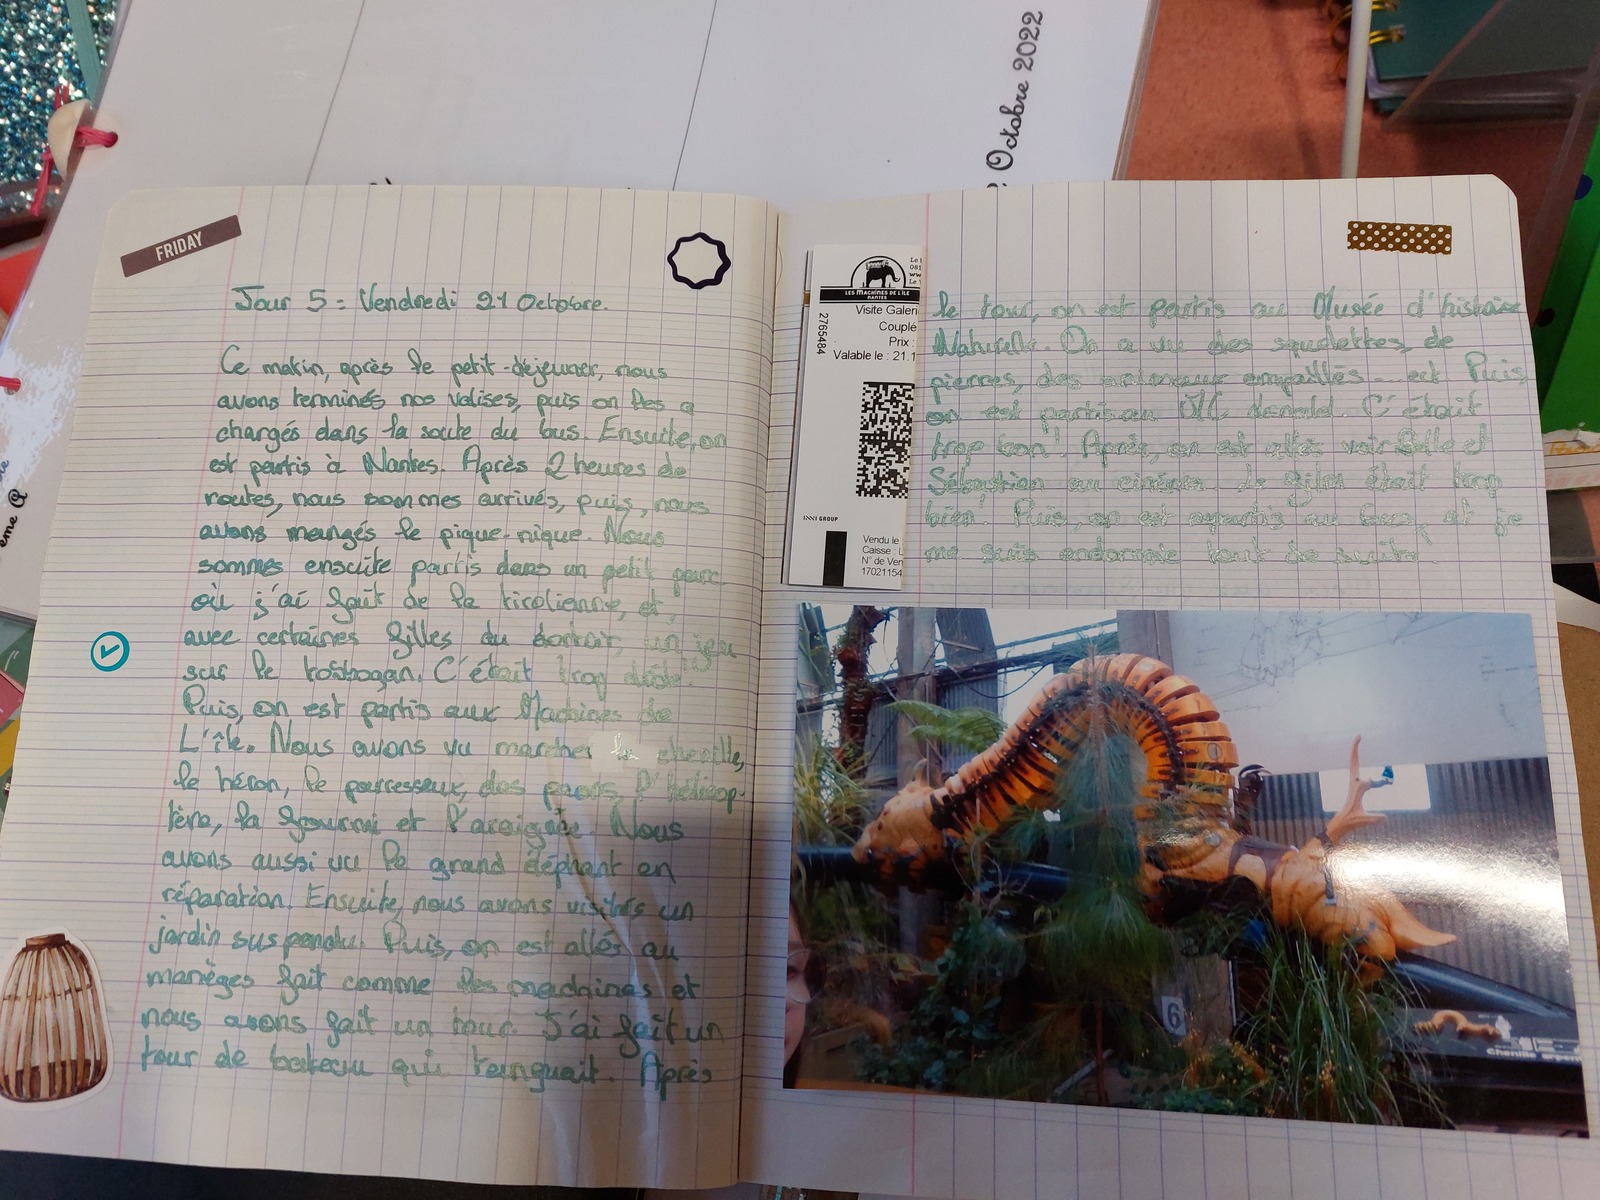 Octobre 2022
eme @
FRIDAY
Jour 5 : Vendredi 21 Octobre.
Ce matin, après le petit-déjeuner, nous
avons terminés nos valises, puis on les a
chargés dans la soute du bus. Ensuite, on
est partis à Nantes. Après 2 heures de
routes, nous sommes arrivés, puis, nous
avons mangés le pique-nique. Nous
sommes ensuite partis dans un petit parc
où j'ai fait de la tirolienne, et,
avec certaines filles du dortoir, un jeu
sur le tobbogan. C'était trop drôle!
Puis, on est partis aux Machines de
L'île. Nous avons vu marcher la chenille,
le héron, le parcesseux, des paons, l'hélicop-
tère, la fourmi et l'araignée. Nous
avons aussi vu le grand éléphant en
réparation. Ensuite, nous avons visités un
jardin suspendu. Puis, on est allés au
manèges fait comme les et
nous avons fait un tour. J'ai fait un
tour de bateau qui tanguait. Après
LES MACHINES DE L'ÎLE
NANTES
Visite Galeri
Couplé
Prix :
Valable le : 21.1
2765484
GROUP
Vendu le
Caisse : L
N° de Ven
17021154
le tour, on est partis au Musée d'histoire
Naturelle. On a vu des squelettes, de
pierres, des animaux empaillés... ect Puis,
on est partis au Mc donald. C'était
trop bon! Après, on est allés voir Belle et
Sébastien au cinéma. Le film était trop
bien! Puis, on est repartis au bus, et je
me suis endormie tout de suite!
6
chenille arpen